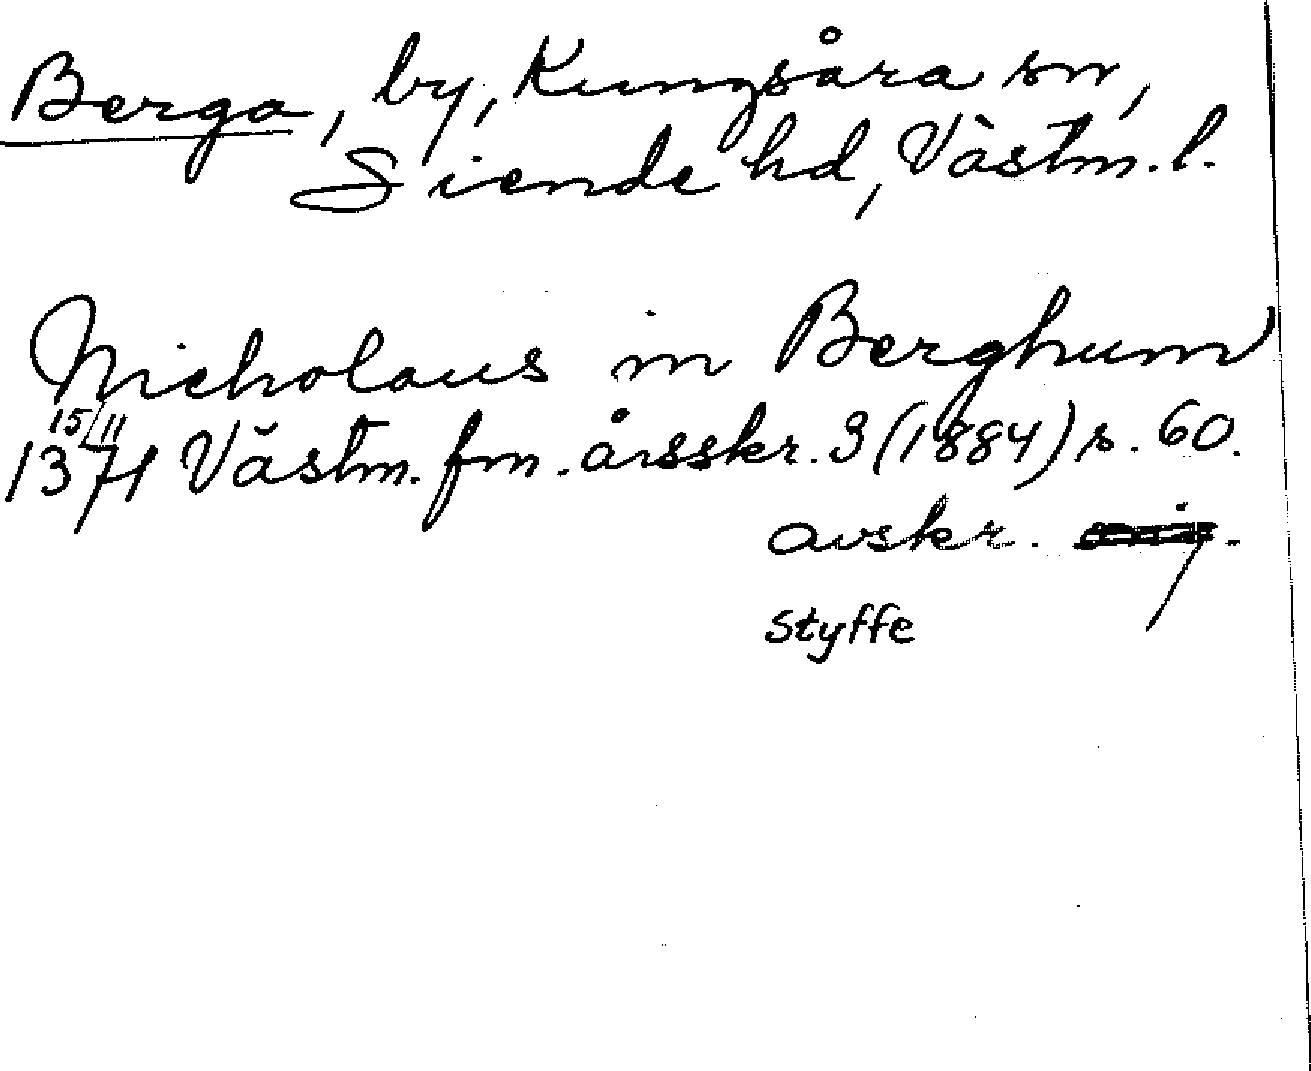 Berga, by, Kungsåra sn,
Siende hd, Västm. l.
Nicholaus in Berghum
15/11
1371 Västm. fm. årsskr. 3 (1884) s. 60.
avskr.
Styffe